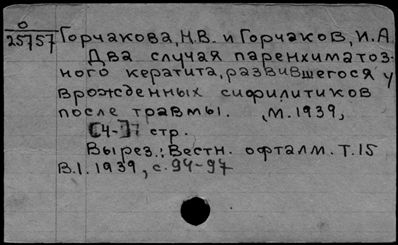 О
25757 Горчакова, Н.В. и Горчаков, И.А.
Два случая паренхиматоз-
ного кератита, развившегося у
врожденных сифилитиков
после травмы. М. 1939,
[4-]7 стр.
Вырез.: Вестн. офталм. Т.15
В.1. 1939, с. 94-97